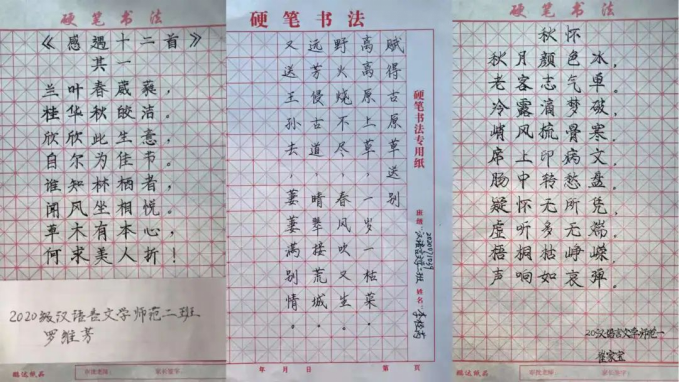 硬笔书法
《感遇十二首》
其一
兰叶春葳蕤，
桂华秋皎洁。
欣欣此生意，
自尔为佳节。
谁知林栖者，
闻风坐相悦。
草木有本心，
何求美人折！
2020级汉语言文学师范二班
罗维芳
硬笔书法
赋得古原草送别
离离原上草，一岁一枯荣。
野火烧不尽，春风吹又生。
远芳侵古道，晴翠接荒城。
又送王孙去，萋萋满别情。
硬笔书法专用纸
班级
姓名
年 月 日
第 页
硬笔书法
秋怀
秋月颜色冰，
老客志气单。
冷露滴梦破，
峭风梳骨寒。
席上印病文，
肠中转愁盘。
疑怀无所凭，
虚听多无端。
梧桐枯峥嵘，
声响如哀弹。
20汉语言文学师范一
崔家宝